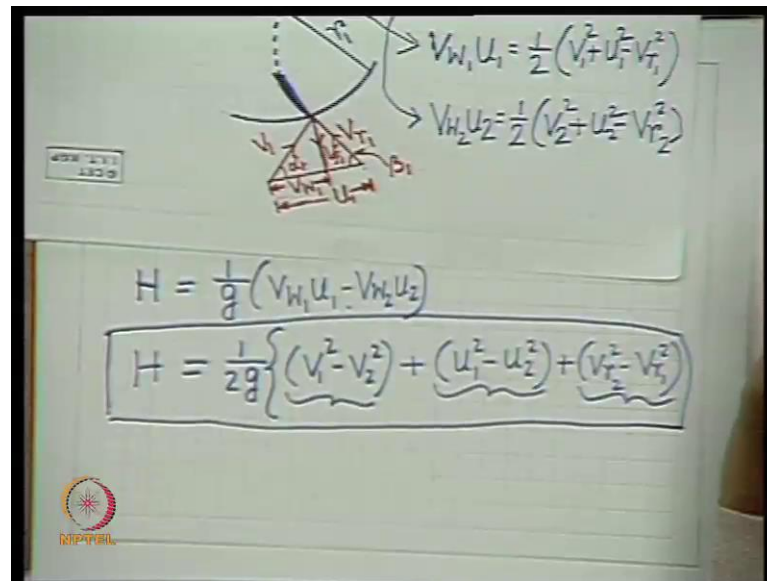 r₁
V_{W₁}U₁ = \frac{1}{2}(V₁² + U₁² - V_{r₁}²)
V_{W₂}U₂ = \frac{1}{2}(V₂² + U₂² - V_{r₂}²)
V₁ α₁ V_{f₁} V_{r₁} β₁
V_{W₁}
U₁
© CET
I.I.T. KGP
H = \frac{1}{g}(V_{W₁}U₁ - V_{W₂}U₂)
H = \frac{1}{2g}{(V₁² - V₂²) + (U₁² - U₂²) + (V_{r₂}² - V_{r₁}²)}
NPTEL